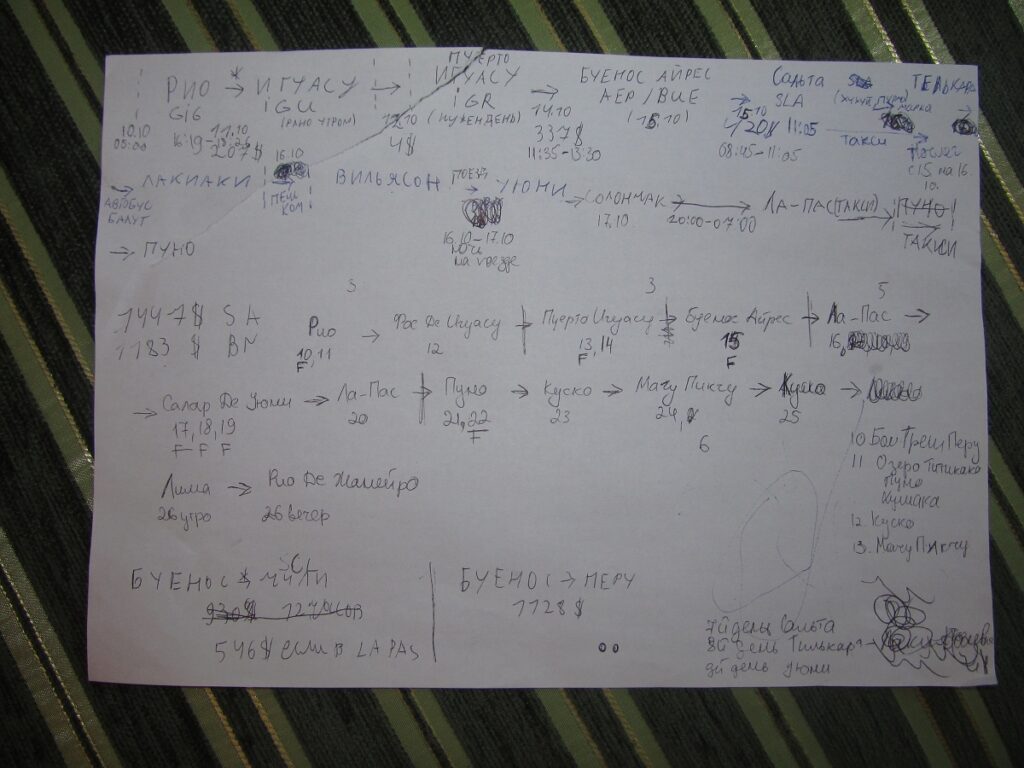 ПУЕРТО
РИО → ИГУАСУ → ИГУАСУ → БУЕНОС АЙРЕС → Сальта ТЕЛЬКАРА →
GIG iGU iGR AEP / BUE SLA
(РАНО УТРОМ) (НУЖЕН ДЕНЬ) (15.10)
10.10 11.10 12.10 14.10 15.10
05:00 16:19-18:26 207$ 4$ 337$ 420$ 11:05 ТАКСИ
11:35-13:30 08:45-11:05 с 15 на 16.
10.
→ ЛАКИАКИ 16.10 → ВИЛЬЯСОН ПОЕЗД → УЮНИ → СОЛОНЧАК → ЛА-ПАС (ТАКСИ) → ПУНО
АВТОБУС ПЕШКОМ 17.10 20:00-07:00 ТАКСИ
БАЛУТ 16.10-17.10
ночь
на поезде
→ ПУНО
3 3 5
1447$ SA
1183$ BN
Рио → Фос Де Игуасу → Пуерто Игуасу → Буенос Айрес → Ла-Пас →
10, 11 12 13, 14 15 16,
F F F
→ Салар Де Уюни → Ла-Пас → Пуно → Куско → Мачу Пикчу → Куско →
17, 18, 19 20 21, 22 23 24, 25
F F F F 6
10 Бан Треш Перу
11 Озеро Титикака
Пуно
12. Куско
13. Мачу Пикчу
Лима → Рио Де Жанейро
26 утро 26 вечер
БУЕНОС → ЧИЛИ
930$ 127 часов
546$ если в LA PAS
БУЕНОС → ПЕРУ
1128$
7й день Сальта
8й день Тилькара
9й день Уюни